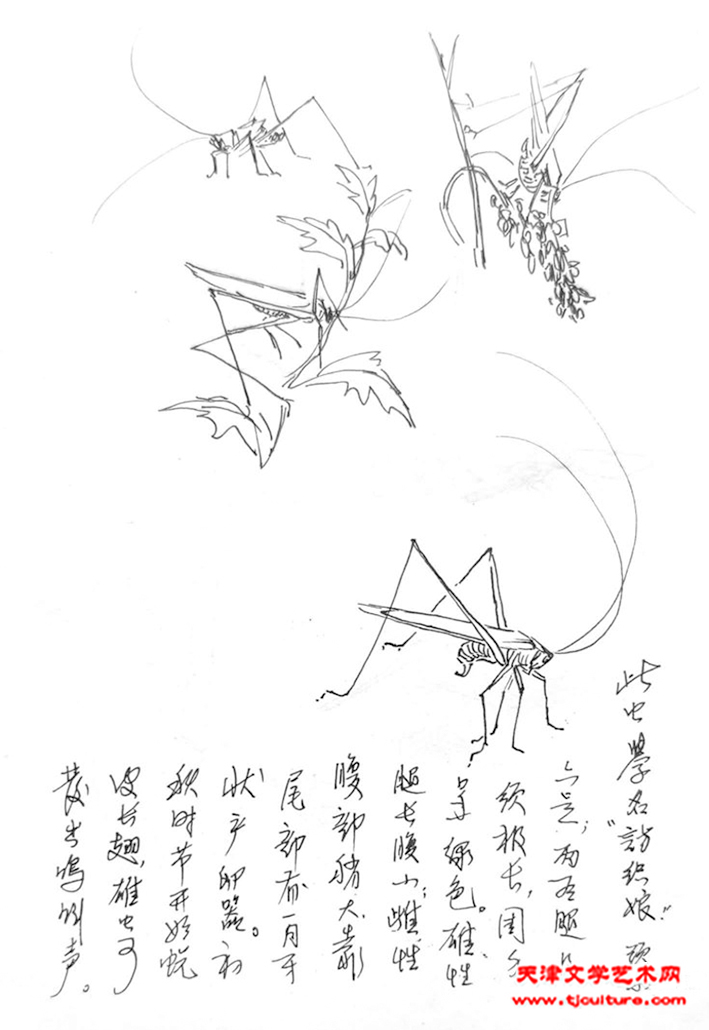 此虫學名“訪织娘。”
六足，两后腿
须极长，周身
呈绿色。雄性
腿长腹小；雌性
腹部稍大，靠
尾部有一月牙
状产卵器。初
秋时节开始蜕
皮长翅，雄虫可
發出鸣叫声。
天津文学艺术网
www.tjculture.com